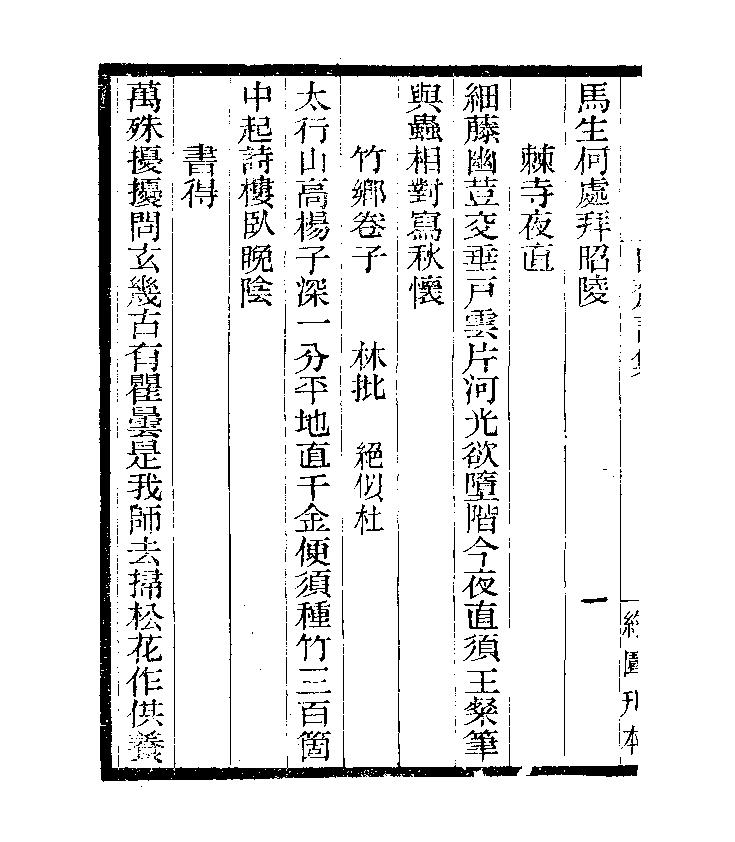 馬生何處拜昭陵
棘寺夜直
細藤幽荳交垂戸雲片河光欲墮階今夜直須王粲筆
與蟲相對寫秋懷
竹鄉卷子 林批 絕似杜
太行山高楊子深一分平地直千金便須種竹三百箇
中起詩樓臥晚陰
書得
萬殊擾擾問玄幾古有瞿曇是我師去掃松花作供養
一